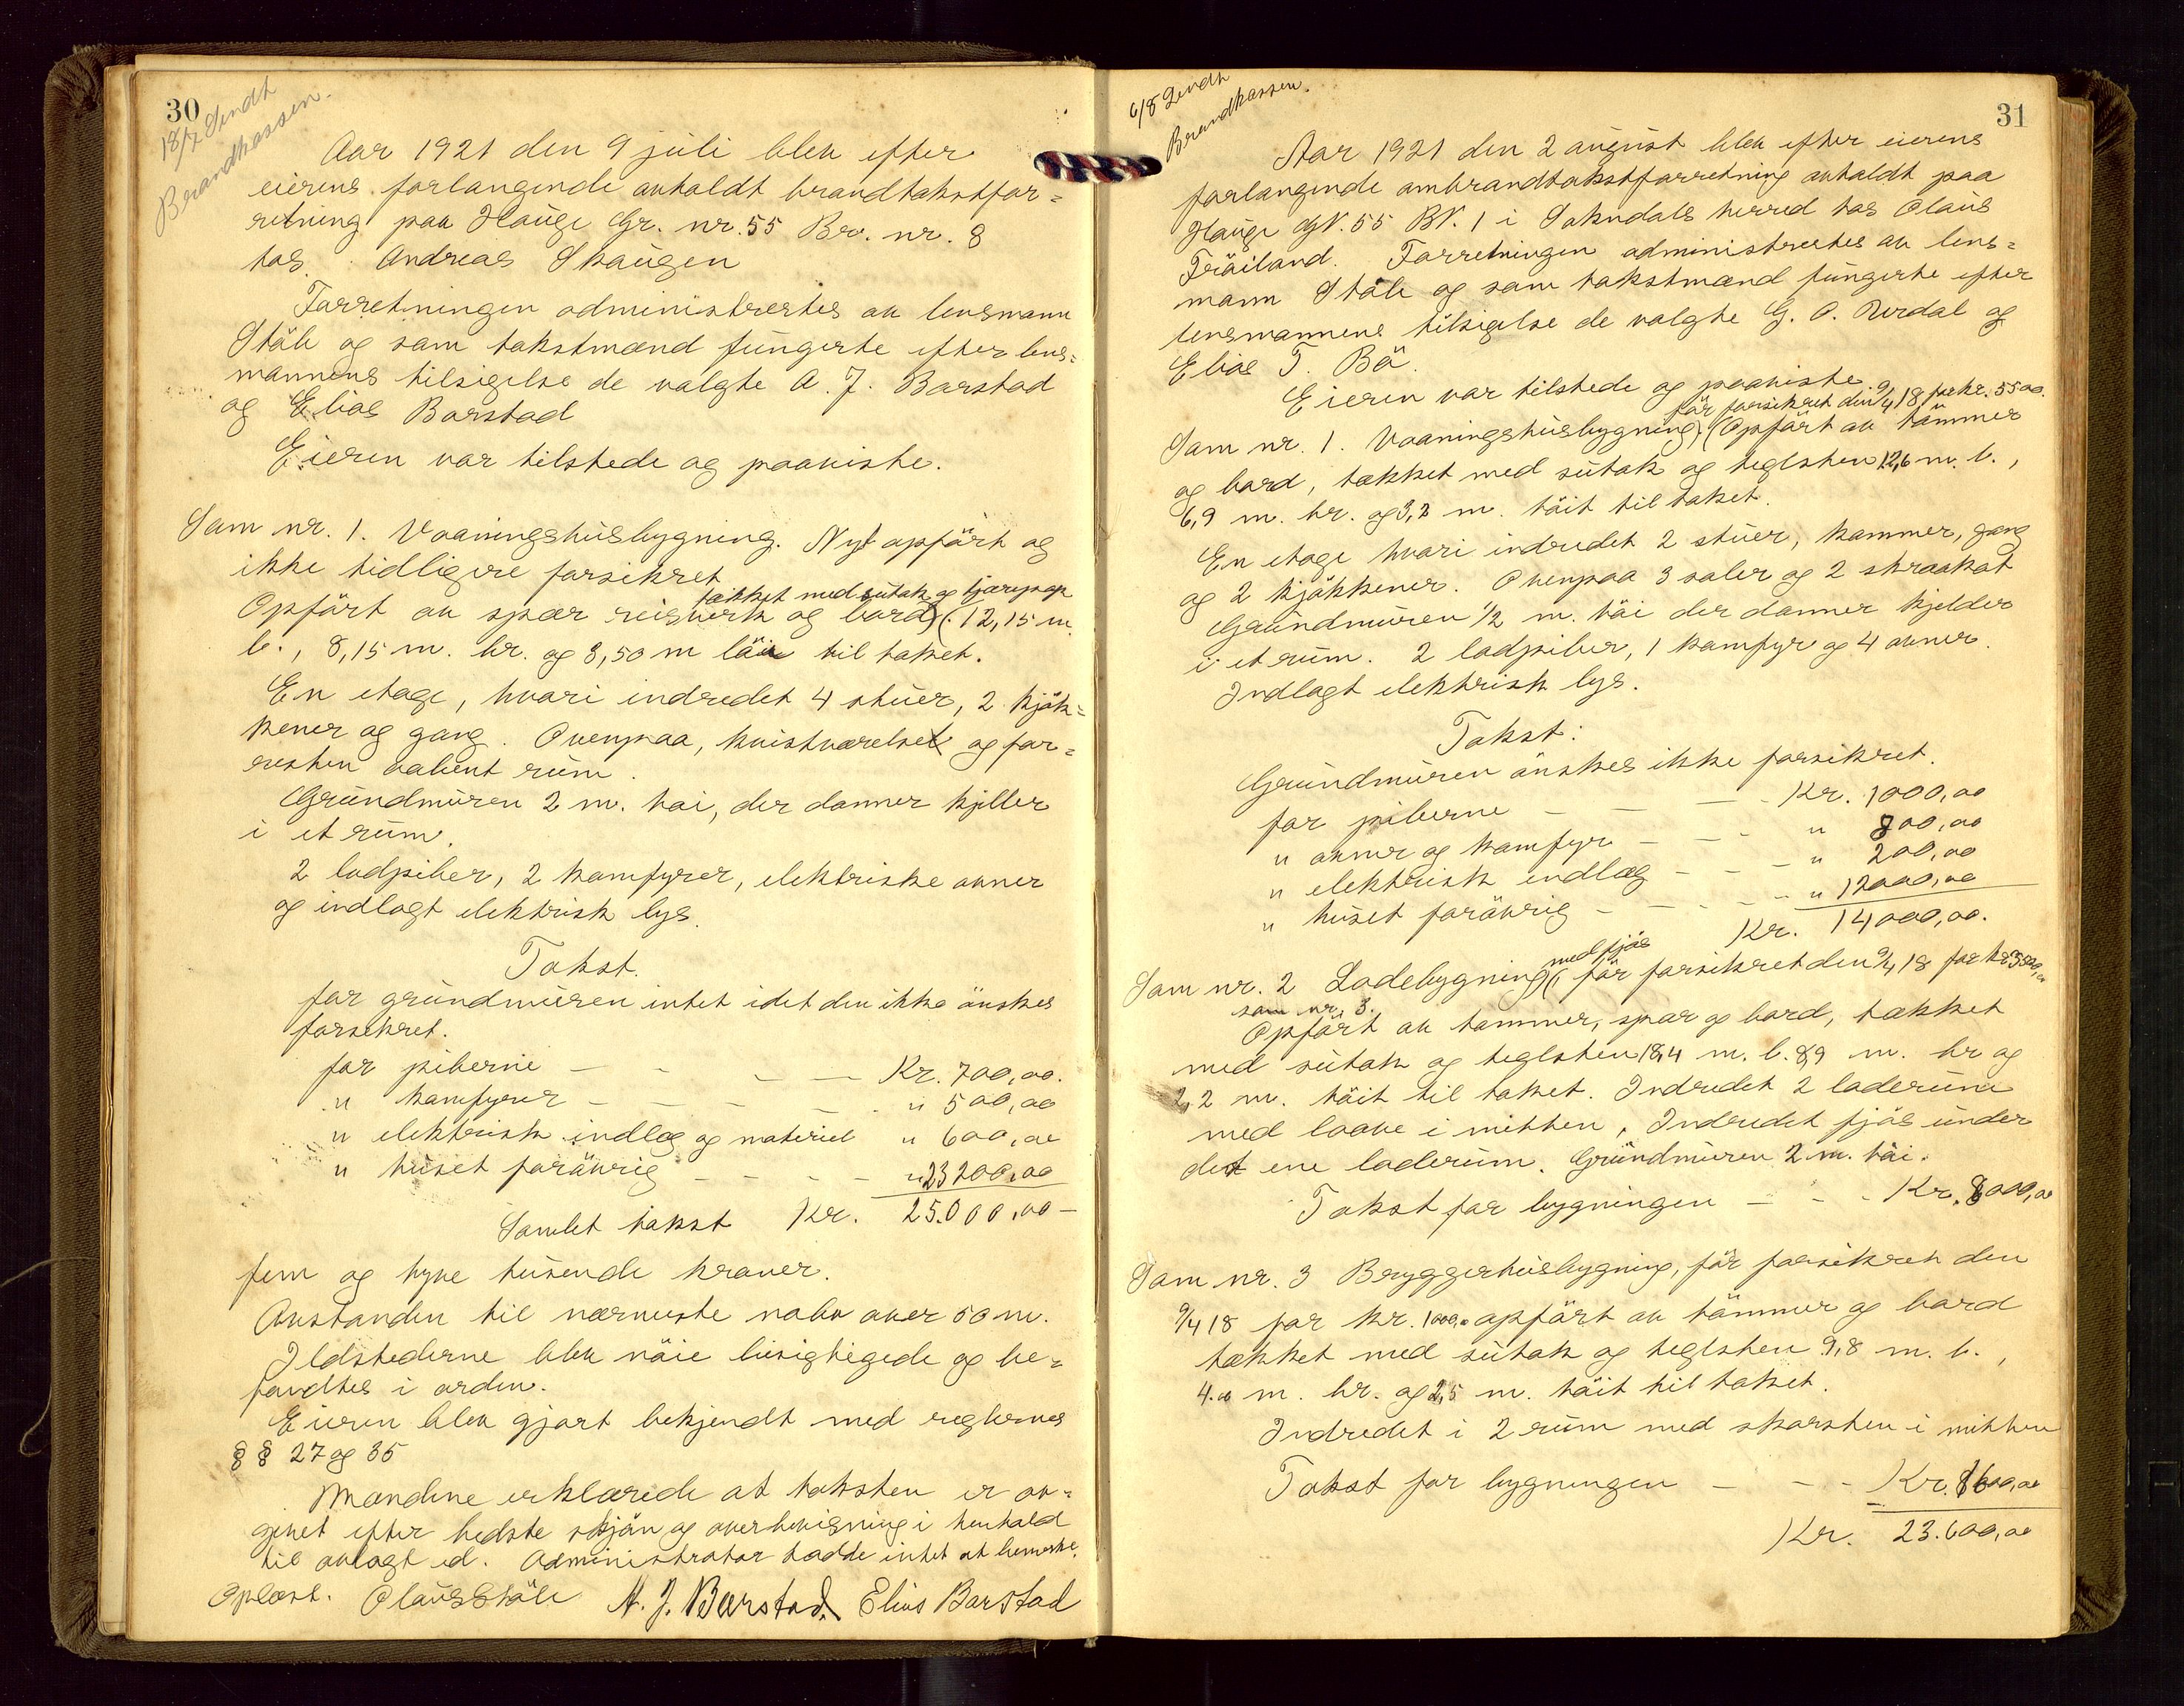 30
18/7 Sendt
Brandkassen.
Aar 1921 den 9 juli blev efter
eierens forlangende avholdt brandtakstfor=
retning paa Hauge Gr. nr. 55 Br. nr. 8
hos Andreas Skaugen
Forretningen administrertes av lensmann
Ståle og som takstmænd fungerte efter lens=
mannens tilsigelse de valgte A. J. Barstad
og Elias Barstad
Eieren var tilstede og paaviste.
Som nr. 1. Vaaningshusbygning. Nyt opført og
ikke tidligere forsikret
tækket med sutak og tjærepap
Opført av spær reisverk og bord). 12,15 m.
l., 8,15 m. br. og 3,50 m til taket.
En etage, hvori indredet 4 stuer, 2 kjøk=
kener og gang. Ovenpaa, kvistværelset og for=
resten aabent rum.
Grundmuren 2 m. høi, der danner kjeller
i et rum.
2 ladpiber, 2 komfyrer, elektriske ovner
og indlagt elektrisk lys.
Takst.
for grundmuren intet idet den ikke ønskes
forsikret.
for piberne - - - - Kr. 700,00.
" komfyrer - - - - " 500,00
" elektrisk indlæg og materiel " 600,00
" huset forøvrig - - - - " 23200,00
Samlet takst Kr. 25.000,00 -
fem og tyve tusende kroner.
Avstanden til nærmeste nabo over 50 m.
Ildstederne blev nøie besigtigede og be=
fandtes i orden.
Eieren blev gjort bekjendt med reglernes
§ § 27 og 35
Mændene erklærede at taksten er av=
givet efter bedste skjøn og overbevisning i henhold
til avlagt ed. Administrator hadde intet at bemerke.
Oplæst. Olaus Ståle A. J. Barstad. Elias Barstad
31
6/8 Sendt
Brandkassen.
Aar 1921 den 2 august blev efter eierens
forlangende ombrandtakstforretning avholdt paa
Hauge GN. 55 BN. 1 i Sokndals herred hos Olaus
Frøiland. Forretningen administrertes av lens=
mann Ståle og som takstmænd fungerte efter
lensmannens tilsigelse de valgte G. O. Urdal og
Elias T. Bö.
Eieren var tilstede og paaviste.
før forsikret den 9/4 18 for kr. 5500.
Som nr. 1. Vaaningshusbygning). (Opført av tømmer
og bord, tækket med sutak og teglsten 12,6 m. l.,
6,9 m. br. og 3,2 m. høit til taket.
En etage hvori indredet 2 stuer, kammer, gang
og 2 kjøkkener. Ovenpaa 3 saler og 2 skraakot
Grundmuren 1/2 m. høi der danner kjelder
i et rum. 2 ladpiber, 1 komfyr og 4 ovner.
Indlagt elektrisk lys.
Takst:
Grundmuren ønskes ikke forsikret.
for piberne - - - Kr. 1000,00
" ovner og komfyr - - - " 800,00
" elektrisk indlæg - - - " 200,00
" huset forøvrig - - - - " 12000,00
Kr. 14000,00.
med fjøs
Som nr. 2 Ladebygning (, før forsikret den 9/4 18 for kr 3500,00
som nr. 3.
Opført av tømmer, spær og bord, tækket
med sutak og teglsten 18,4 m. l. 8,9 m. br og
2,2 m. høit til taket. Indredet 2 laderum
med laave i mitten, Indredet fjøs under
det ene laderum. Grundmuren 2 m. høi.
Takst for bygningen - - - Kr. 8000,00
Som nr. 3 Bryggerhusbygning, før forsikret den
9/4 18 for kr. 1000,00 opført av tømmer og bord
tækket med sutak og teglsten 9,8 m. l.,
4.00 m. br. og 2,5 m. høit til taket.
Indredet i 2 rum med skorsten i mitten
Takst for bygningen - - - Kr. 1600,00
Kr. 23.600,00